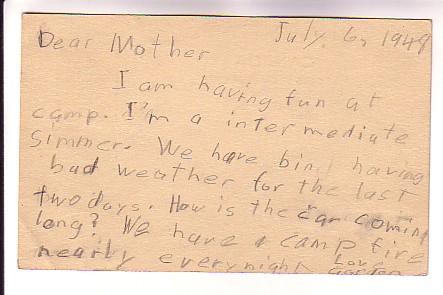 July. 6, 1949
Dear Mother
I am having fun at
camp. I'm a intermediate
Simmer. We have bin having
bad weather for the last
two days. How is the car coming
long? We have a camp fire
nearly every night Love
Gordon